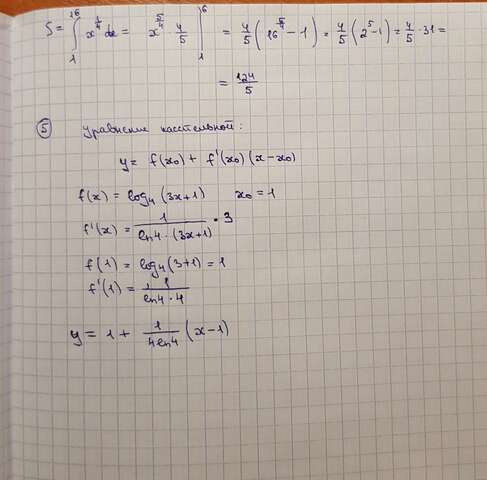 S = ∫₁¹⁶ x^(1/4) dx = x^(5/4) · 4/5 |₁¹⁶ = 4/5 (16^(5/4) − 1) = 4/5 (2⁵ − 1) = 4/5 · 31 =
= 124/5
⑤ уравнение касательной:
y = f(x₀) + f'(x₀)(x − x₀)
f(x) = log₄(3x+1) x₀ = 1
f'(x) = 1/(ln4 · (3x+1)) · 3
f(1) = log₄(3+1) = 1
f'(1) = 1/(ln4 · 4)
y = 1 + 1/(4ln4) (x − 1)